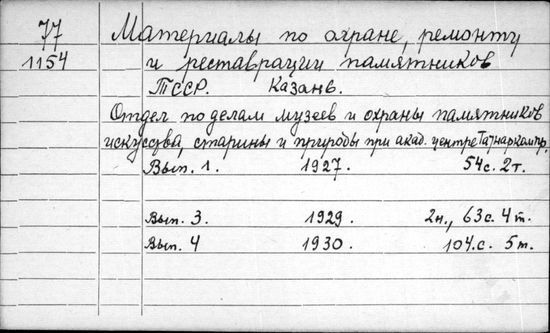 77 Материалы по охране, ремонту
1154 и реставрации памятников
ТССР. Казань.
Отдел по делам музеев и охраны памятников
искусства, старины и природы при акад. центре Татнаркомпр.
Вып. 1. 1927. 54 с. 2 т.
Вып. 3. 1929. 2н., 63 с. 4 т.
Вып. 4 1930. 104 с. 5 т.